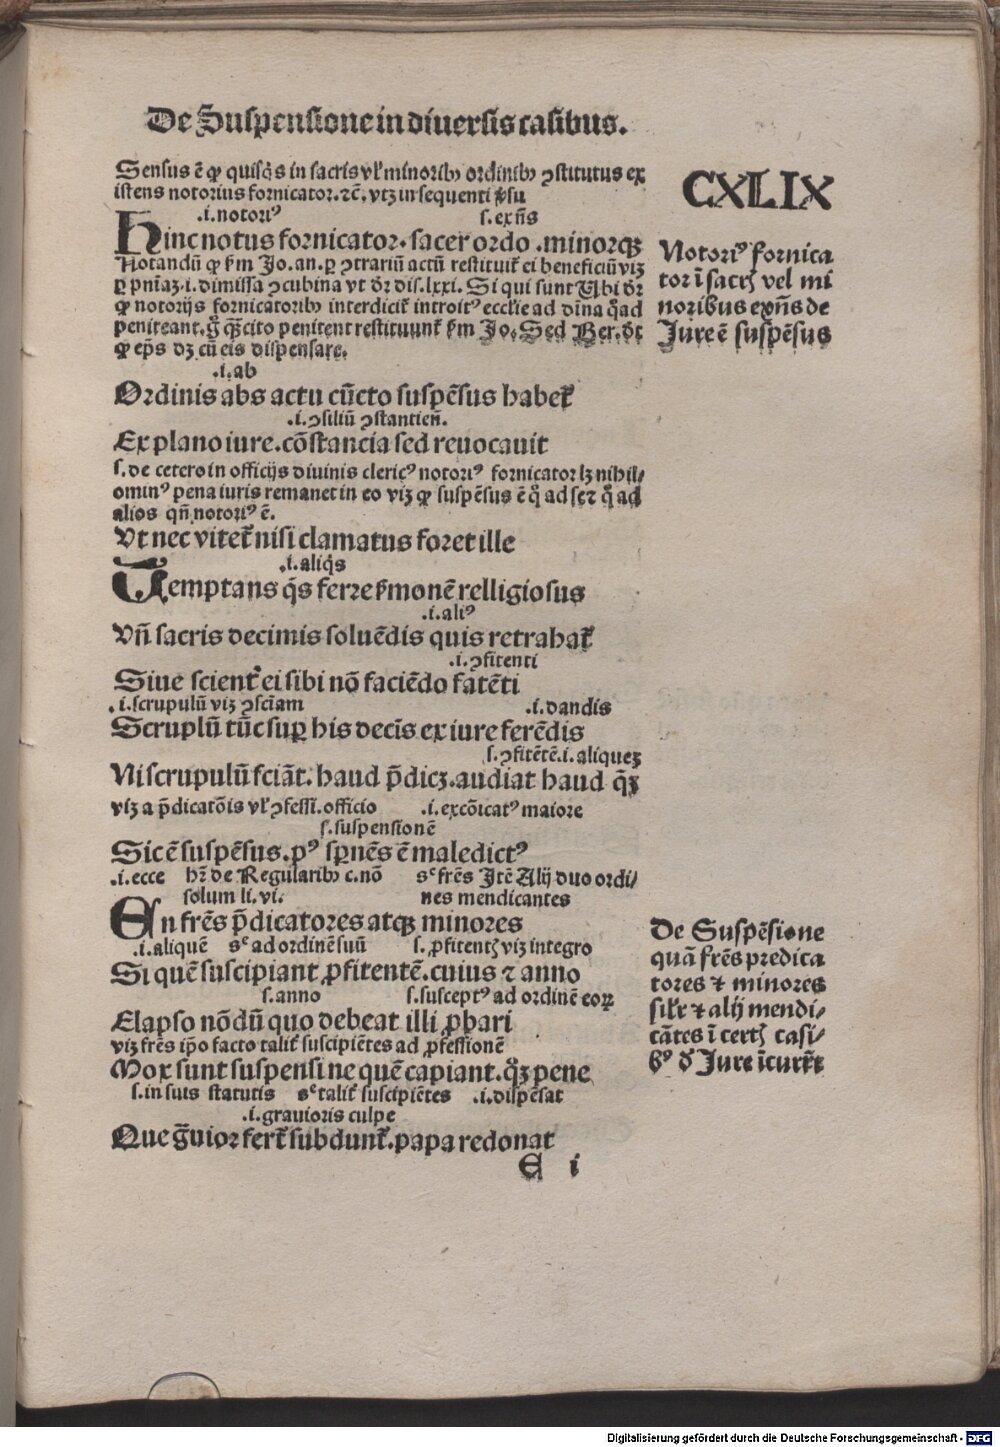 De Suspensione in diuersis casibus.
CXLIX
Sensus ē ꝙ quisq̃s in sacris vl̕ minoribꝰ ordinibꝰ ꝯstitutus ex
istens notorius fornicator.⁊c̄. vtꝫ in sequenti ṽsu
.i.notoriꝰ s.exn̄s
Hinc notus fornicator. sacer ordo .minorqꝫ
Notandū ꝙ ẜm Jo.an.ꝑ ꝯtrariū actū restituit̕ ei beneficiū viꝫ
ꝑ pn̄iaꝫ.i.dimissa ꝯcubina vt dr̄ dis.lxxi. Si qui sunt Vbi dr̄
ꝙ notorijs fornicatoribꝰ interdicit̕ introitꝰ eccl̕ie ad diīna q̊ad
peniteant.g̊ q̃scito penitent restituunt̕ ẜm Jo. Sed Ber.dt̄
ꝙ ep̄s dꝫ cū eis dispensare.
.i.ab
Ordinis abs actu cūcto suspēsus habet̕
.i.ꝯsiliū ꝯstantien̄.
Ex plano iure.cōstancia sed reuocauit
s.de cetero in officijs diuinis clericꝰ notoriꝰ fornicator lꝫ nihil⸗
ominꝰ pena iuris remanet in eo viꝫ ꝙ suspēsus ē q̊ ad se ⁊ q̊ ad
alios qn̄ notoriꝰ ē.
Vt nec vitet̕ nisi clamatus foret ille
.i.aliq̃s
Temptans q̃s ferre ẜmonē relligiosus
.i.aliꝰ
Vn̄ sacris decimis soluēdis quis retrahat̕
.i.ꝯfitenti
Siue scient̕ ei sibi nō faciēdo fatēti
.i.scrupulū viꝫ ꝯsciam .i.dandis
Scruplū tūc suꝑ his decīs ex iure ferēdis
s.ꝯfitētē.i.aliqueꝫ
Ni scrupulū fciāt. haud p̄dicꝫ.audiat haud q̄ꝫ
viꝫ a p̄dicatōis vl̕ ꝯfessī.officio .i.excōicatꝰ maiore
s.suspensionē
Sic ē suspēsus.pꝰ sꝑnēs ē maledictꝰ
.i.ecce hr̄ de Regularibꝰ c.nō sᶜ frēs Jtē Alij duo ordi⸗
solum li.vi. nes mendicantes
En frēs p̄dicatores atqꝫ minores
.i.aliquē sᶜ ad ordinē suū s.ꝓfitentꝭ viꝫ integro
Si quē suscipiant ꝓfitentē.cuius ⁊ anno
s.anno s.susceptꝰ ad ordinē eoꝝ
Elapso nōdū quo debeat illi ꝓbari
viꝫ frēs ip̄o facto talit̕ suscipiētes ad ꝓfessionē
Mox sunt suspensi ne quē capiant.q̊ꝫ pene
s.in suis statutis sᶜ talit̕ suscipiētes .i.dispēsat
.i.grauioris culpe
Que g̃uior fert̕ subdunt̕.papa redonat
E i
Notoriꝰ fornica
tor ī sacrꝭ vel mi
noribus exn̄s de
Jure ē suspēsus
De Suspēsione
quā frēs predica
tores ⁊ minores
sil̕r ⁊ alij mendi⸗
cātes ī certꝭ casi⸗
bꝰ d̕ Jure īcurrt̄
Digitalisierung gefördert durch die Deutsche Forschungsgemeinschaft - DFG